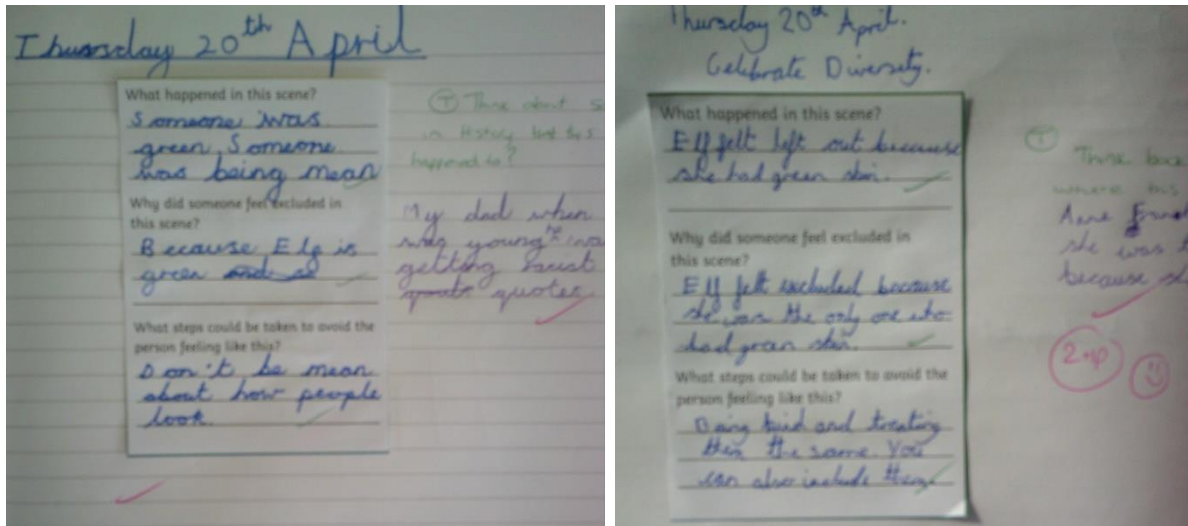 Thursday 20th April
What happened in this scene?
Someone was
green. Someone
was being mean
Why did someone feel excluded in
this scene?
Because Elf is
green
What steps could be taken to avoid the
person feeling like this?
Don't be mean
about how people
look.
T Think about
in History that this
happened to?
My dad when
he was young
getting
quotes
Thursday 20th April.
Celebrate Diversity.
What happened in this scene?
Elf felt left out because
she had green skin.
Why did someone feel excluded in
this scene?
Elf felt excluded because
she was the only one who
had green skin.
What steps could be taken to avoid the
person feeling like this?
Being kind and treating
them the same. You
can also include them.
T
Think back
where this
Anne
she was
because
2